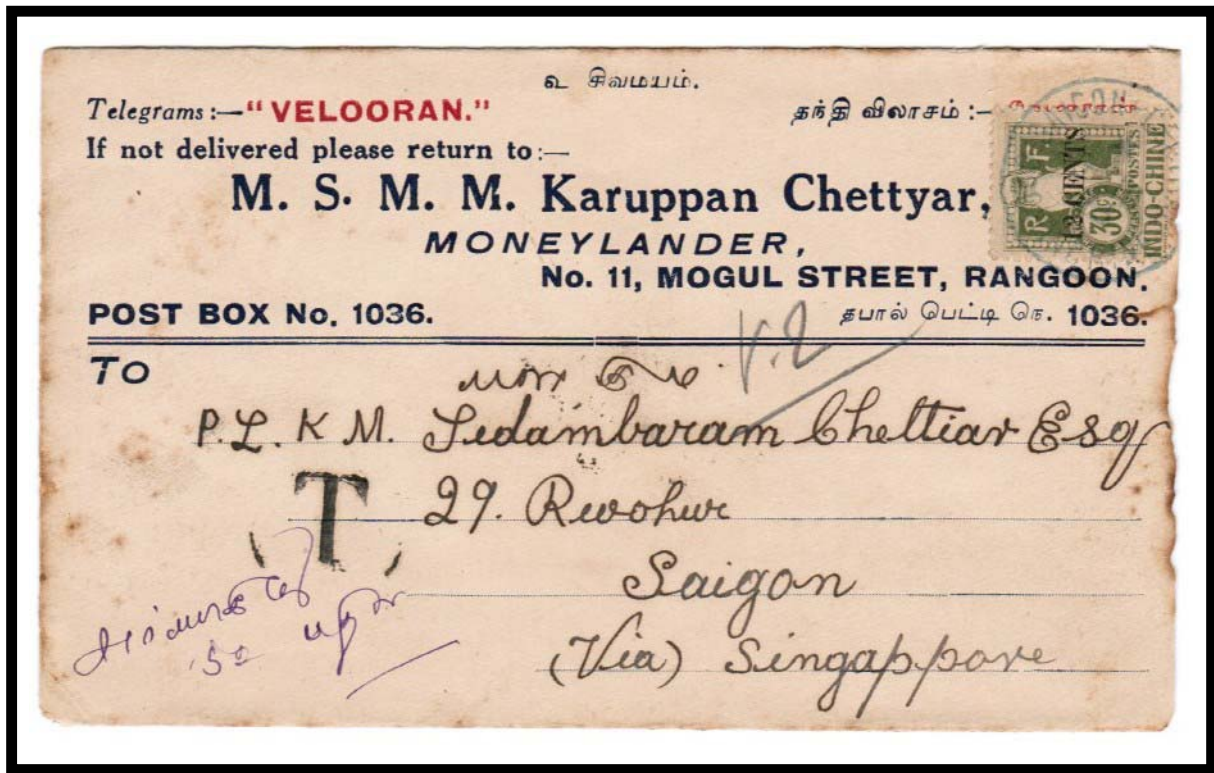 உ சிவமயம்.
Telegrams:—"VELOORAN." தந்தி விலாசம் :–
If not delivered please return to:—
M. S. M. M. Karuppan Chettyar,
MONEYLANDER,
No. 11, MOGUL STREET, RANGOON.
POST BOX No. 1036. தபால் பெட்டி நெ. 1036.
R F
12 CENTS
30
POSTES
INDO-CHINE
TO
P. L. K M. Sedambaram Chettiar Esq
T
29. Rwohwr
Saigon
(Via) Singappore